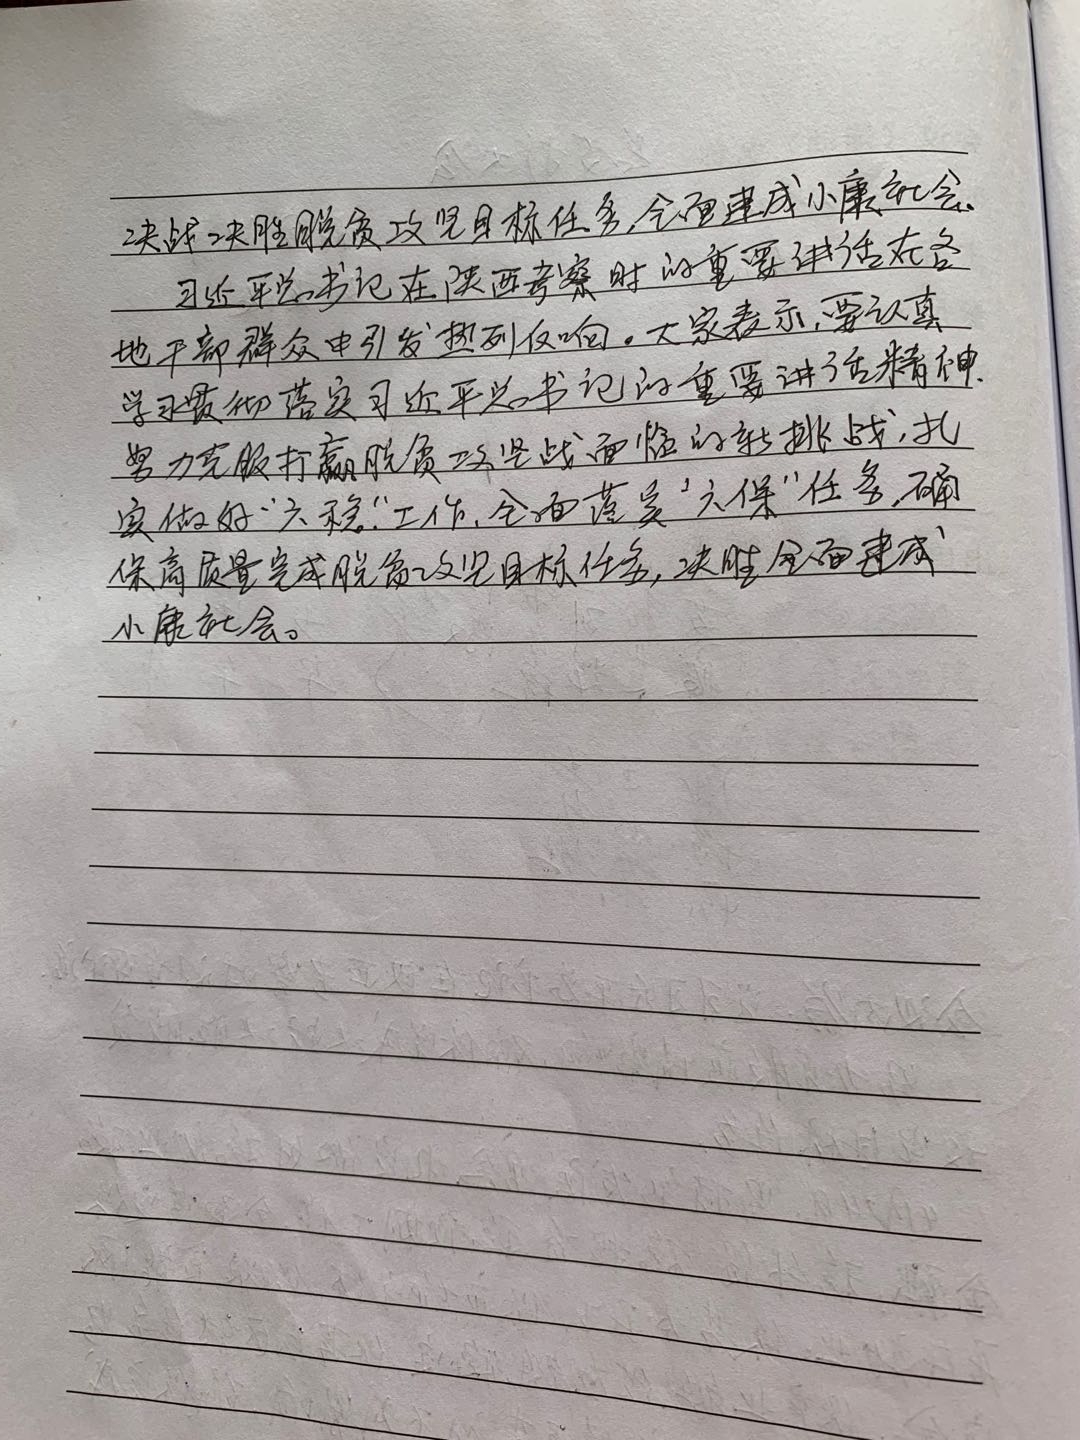 决战决胜脱贫攻坚目标任务,全面建成小康社会。
习近平总书记在陕西考察时的重要讲话在各
地干部群众中引发热烈反响。大家表示,要认真
学习贯彻落实习近平总书记的重要讲话精神,
努力克服打赢脱贫攻坚战面临的新挑战,扎
实做好“六稳”工作、全面落实“六保”任务,确
保高质量完成脱贫攻坚目标任务,决胜全面建成
小康社会。